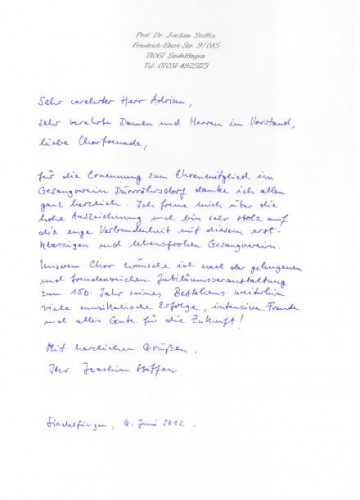 Prof. Dr. Joachim Steffen
Friedrich-Ebert-Str. 9/085
71067 Sindelfingen
Tel. 07031-
Sehr verehrter Herr Adrian,
sehr verehrte Damen und Herren im Vorstand,
liebe Chorfreunde,
für die Ernennung zum Ehrenmitglied im
Gesangverein Dürrröhrsdorf danke ich allen
ganz herzlich. Ich freue mich über die
hohe Auszeichnung und bin sehr stolz auf
die enge Verbundenheit mit diesem erst-
klassigen und lebensfrohen Gesangverein.
Unserem Chor wünsche ich nach der gelungenen
und freudereichen Jubiläumsveranstaltung
zum 150. Jahr seines Bestehens weiterhin
viele musikalische Erfolge, intensive Freude
und alles Gute für die Zukunft!
Mit herzlichen Grüßen,
Ihr Joachim Steffen
Sindelfingen, 4. Juni 2012